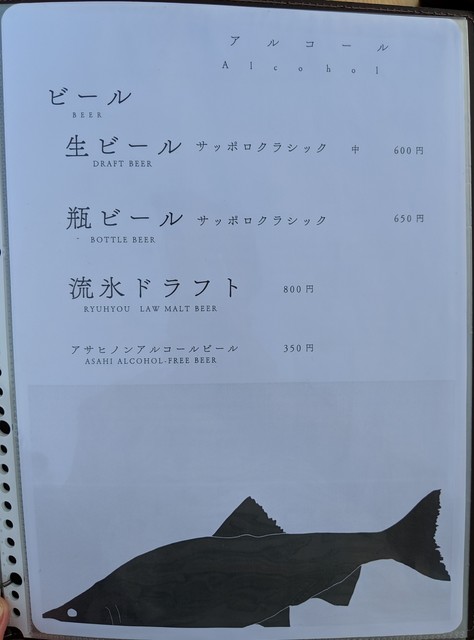 アルコール
Alcohol
ビール
BEER
生ビール サッポロクラシック 中 600円
DRAFT BEER
瓶ビール サッポロクラシック 650円
BOTTLE BEER
流氷ドラフト 800円
RYUHYOU LAW MALT BEER
アサヒノンアルコールビール 350円
ASAHI ALCOHOL-FREE BEER